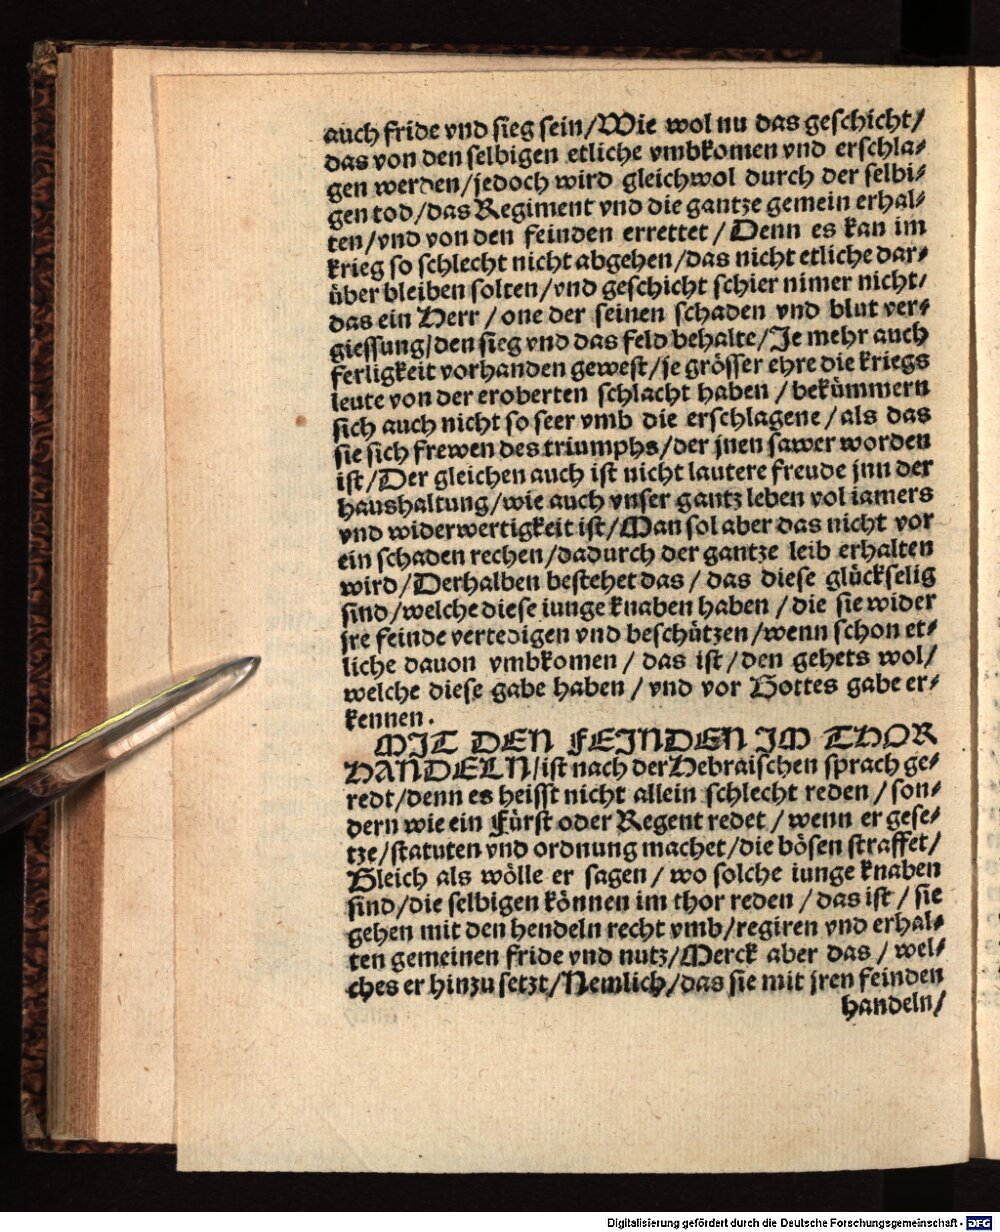 auch fride vnd sieg sein/Wie wol nu das geschicht/
das von den selbigen etliche vmbkomen vnd erschla⸗
gen werden/jedoch wird gleichwol durch der selbi⸗
gen tod/das Regiment vnd die gantze gemein erhal⸗
ten/vnd von den feinden errettet/Denn es kan im
krieg so schlecht nicht abgehen/das nicht etliche dar⸗
über bleiben solten/vnd geschicht schier nimer nicht/
das ein Herr/one der seinen schaden vnd blut ver⸗
giessung/den sieg vnd das feld behalte/Je mehr auch
ferligkeit vorhanden gewest/je grösser ehre die kriegs
leute von der eroberten schlacht haben/bekümmern
sich auch nicht so seer vmb die erschlagene/als das
sie sich frewen des triumphs/der jnen sawer worden
ist/Der gleichen auch ist nicht lautere freude jnn der
haushaltung/wie auch vnser gantz leben vol iamers
vnd widerwertigkeit ist/Man sol aber das nicht vor
ein schaden rechen/dadurch der gantze leib erhalten
wird/Derhalben bestehet das/das diese glückselig
sind/welche diese iunge knaben haben/die sie wider
jre feinde vertedigen vnd beschützen/wenn schon et⸗
liche dauon vmbkomen/das ist/den gehets wol/
welche diese gabe haben/vnd vor Gottes gabe er⸗
kennen.
MIT DEN FEINDEN IM THOR
HANDELN/ist nach der Hebraischen sprach ge⸗
redt/denn es heisst nicht allein schlecht reden/son⸗
dern wie ein Fürst oder Regent redet/wenn er gese⸗
tze/statuten vnd ordnung machet/die bösen straffet/
Gleich als wölle er sagen/wo solche iunge knaben
sind/die selbigen können im thor reden/das ist/sie
gehen mit den hendeln recht vmb/regiren vnd erhal⸗
ten gemeinen fride vnd nutz/Merck aber das/wel⸗
ches er hinzu setzt/Nemlich/das sie mit jren feinden
handeln/
Digitalisierung gefördert durch die Deutsche Forschungsgemeinschaft - DFG